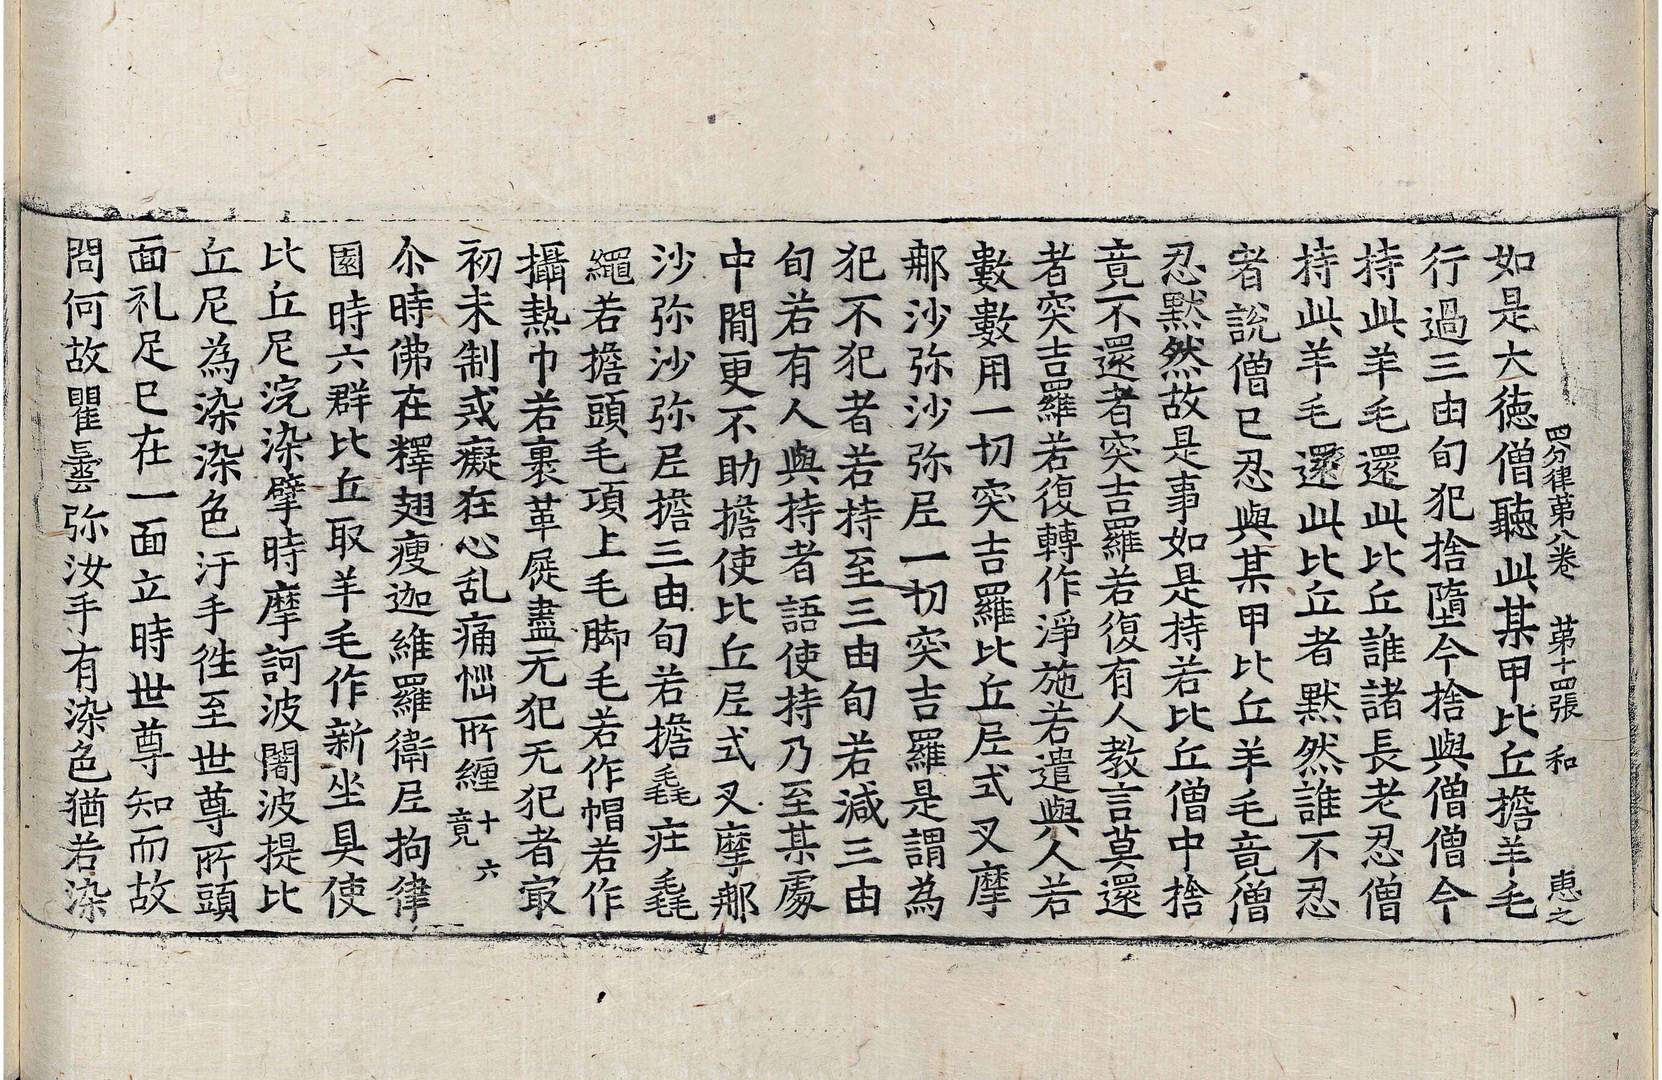 四分律苐八卷 苐十四張 和 惠之
如是大徳僧聽此某甲比丘擔羊毛
行過三由旬犯捨墮今捨與僧僧今
持此羊毛還此比丘誰諸長老忍僧
持此羊毛還此比丘者默然誰不忍
者說僧已忍與某甲比丘羊毛竟僧
忍默然故是事如是持若比丘僧中捨
竟不還者突吉羅若復有人教言莫還
者突吉羅若復轉作淨施若遣與人若
數數用一切突吉羅比丘尼式叉摩
那沙弥沙弥尼一切突吉羅是謂為
犯不犯者若持至三由旬若減三由
旬若有人與持者語使持乃至某處
中間更不助擔使比丘尼式叉摩那
沙弥沙弥尼擔三由旬若擔毳疘毳
繩若擔頭毛項上毛脚毛若作帽若作
攝熱巾若裹革屣盡无犯无犯者㝡
初未制或癡狂心乱痛惱所纏十六竟
尒時佛在釋翅瘦迦維羅衛尼拘律
園時六群比丘取羊毛作新坐具使
比丘尼浣染擘時摩訶波闍波提比
丘尼為染染色汙手徃至世尊所頭
面礼足已在一面立時世尊知而故
問何故瞿曇弥汝手有染色猶若染